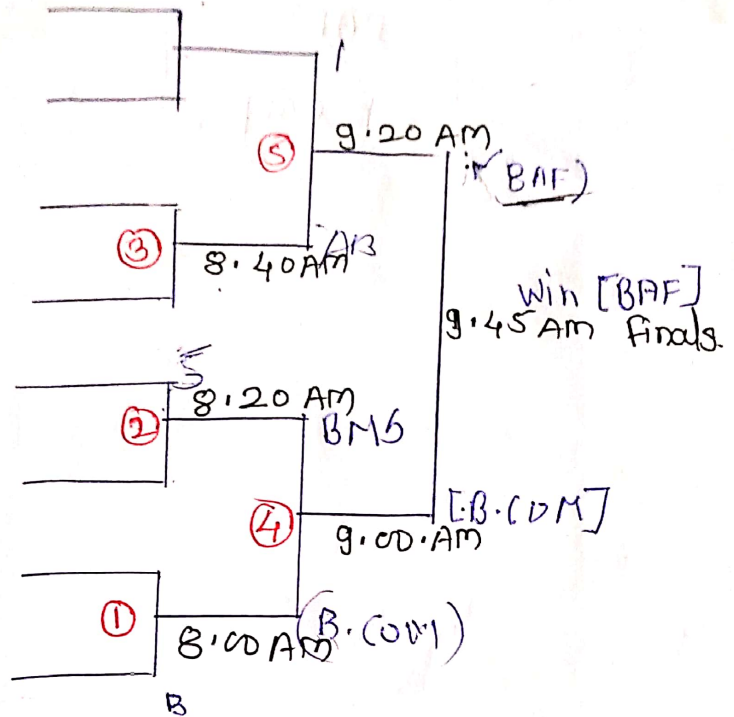 1
9.20 AM
⑤
(BAF)
③
8.40AM
AB
Win [BAF]
9.45 AM finals.
5
8.20 AM
②
BMS
[B.COM]
④
9.00.AM
①
8.00 AM
(B.COM)
B